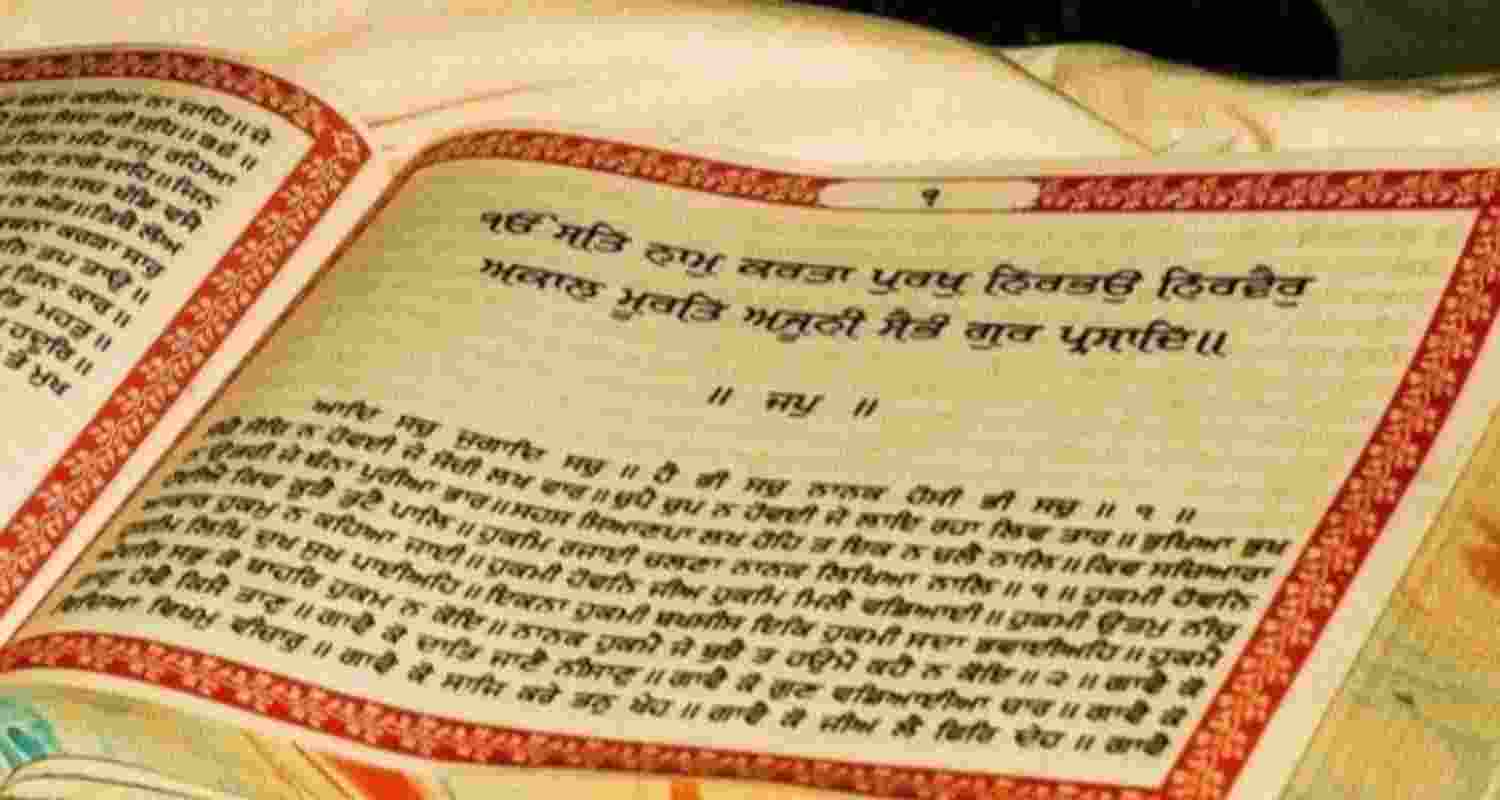 ੧
ੴ ਸਤਿ ਨਾਮੁ ਕਰਤਾ ਪੁਰਖੁ ਨਿਰਭਉ ਨਿਰਵੈਰੁ
ਅਕਾਲ ਮੂਰਤਿ ਅਜੂਨੀ ਸੈਭੰ ਗੁਰ ਪ੍ਰਸਾਦਿ॥
॥ ਜਪੁ ॥
ਆਦਿ ਸਚੁ ਜੁਗਾਦਿ ਸਚੁ ॥ ਹੈ ਭੀ ਸਚੁ ਨਾਨਕ ਹੋਸੀ ਭੀ ਸਚੁ ॥ ੧ ॥
ਸੋਚਿ ਨ ਹੋਵਈ ਜੇ ਸੋਚੀ ਲਖ ਵਾਰ ॥ ਚੁਪੈ ਚੁਪ ਨ ਹੋਵਈ ਜੇ ਲਾਇ ਰਹਾ ਲਿਵ ਤਾਰ ॥ ਭੁਖਿਆ ਭੁਖ
ਨ ਉਤਰੀ ਜੇ ਬੰਨਾ ਪੁਰੀਆ ਭਾਰ ॥ ਸਹਸ ਸਿਆਣਪਾ ਲਖ ਹੋਹਿ ਤ ਇਕ ਨ ਚਲੈ ਨਾਲਿ ॥ ਕਿਵ ਸਚਿਆਰਾ
ਹੋਈਐ ਕਿਵ ਕੂੜੈ ਤੁਟੈ ਪਾਲਿ ॥ ਹੁਕਮਿ ਰਜਾਈ ਚਲਣਾ ਨਾਨਕ ਲਿਖਿਆ ਨਾਲਿ ॥ ੧ ॥ ਹੁਕਮੀ ਹੋਵਨਿ
ਆਕਾਰ ਹੁਕਮੁ ਨ ਕਹਿਆ ਜਾਈ ॥ ਹੁਕਮੀ ਹੋਵਨਿ ਜੀਅ ਹੁਕਮਿ ਮਿਲੈ ਵਡਿਆਈ ॥ ਹੁਕਮੀ ਉਤਮੁ ਨੀਚੁ
ਹੁਕਮਿ ਲਿਖਿ ਦੁਖ ਸੁਖ ਪਾਈਅਹਿ ॥ ਇਕਨਾ ਹੁਕਮੀ ਬਖਸੀਸ ਇਕਿ ਹੁਕਮੀ ਸਦਾ ਭਵਾਈਅਹਿ ॥ ਹੁਕਮੈ
ਅੰਦਰਿ ਸਭੁ ਕੋ ਬਾਹਰਿ ਹੁਕਮ ਨ ਕੋਇ ॥ ਨਾਨਕ ਹੁਕਮੈ ਜੇ ਬੁਝੈ ਤ ਹਉਮੈ ਕਹੈ ਨ ਕੋਇ ॥ ੨ ॥ ਗਾਵੈ ਕੋ
ਤਾਣੁ ਹੋਵੈ ਕਿਸੈ ਤਾਣੁ ॥ ਗਾਵੈ ਕੋ ਦਾਤਿ ਜਾਣੈ ਨੀਸਾਣੁ ॥ ਗਾਵੈ ਕੋ ਗੁਣ ਵਡਿਆਈਆ ਚਾਰ ॥ ਗਾਵੈ ਕੋ
ਵਿਦਿਆ ਵਿਖਮੁ ਵੀਚਾਰੁ ॥ ਗਾਵੈ ਕੋ ਸਾਜਿ ਕਰੇ ਤਨੁ ਖੇਹ ॥ ਗਾਵੈ ਕੋ ਜੀਅ ਲੈ ਫਿਰਿ ਦੇਹ ॥ ਗਾਵੈ